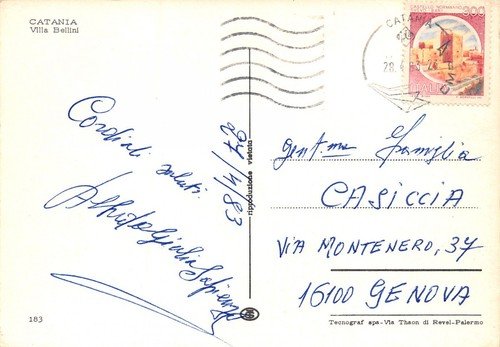 CATANIA
Villa Bellini
Cordiali saluti.
Alfredo Giulia Sapienza
27/4/83
riproduzione vietata
183
CATANIA
28.4.83
300
CASTELLO NORMANNO
ITALIA
Gent.ma Famiglia
CASICCIA
VIA MONTENERO, 37
16100 GENOVA
Tecnograf spa-Via Thaon di Revel-Palermo